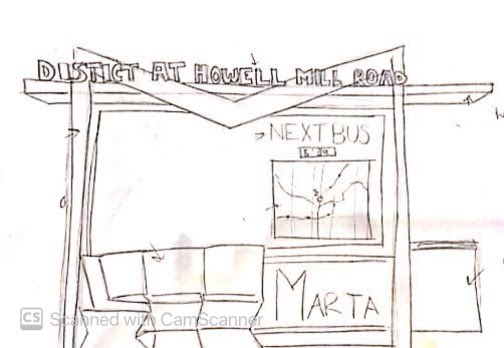 DISTICT AT HOWELL MILL ROAD
NEXT BUS
MARTA
CS Scanned with CamScanner